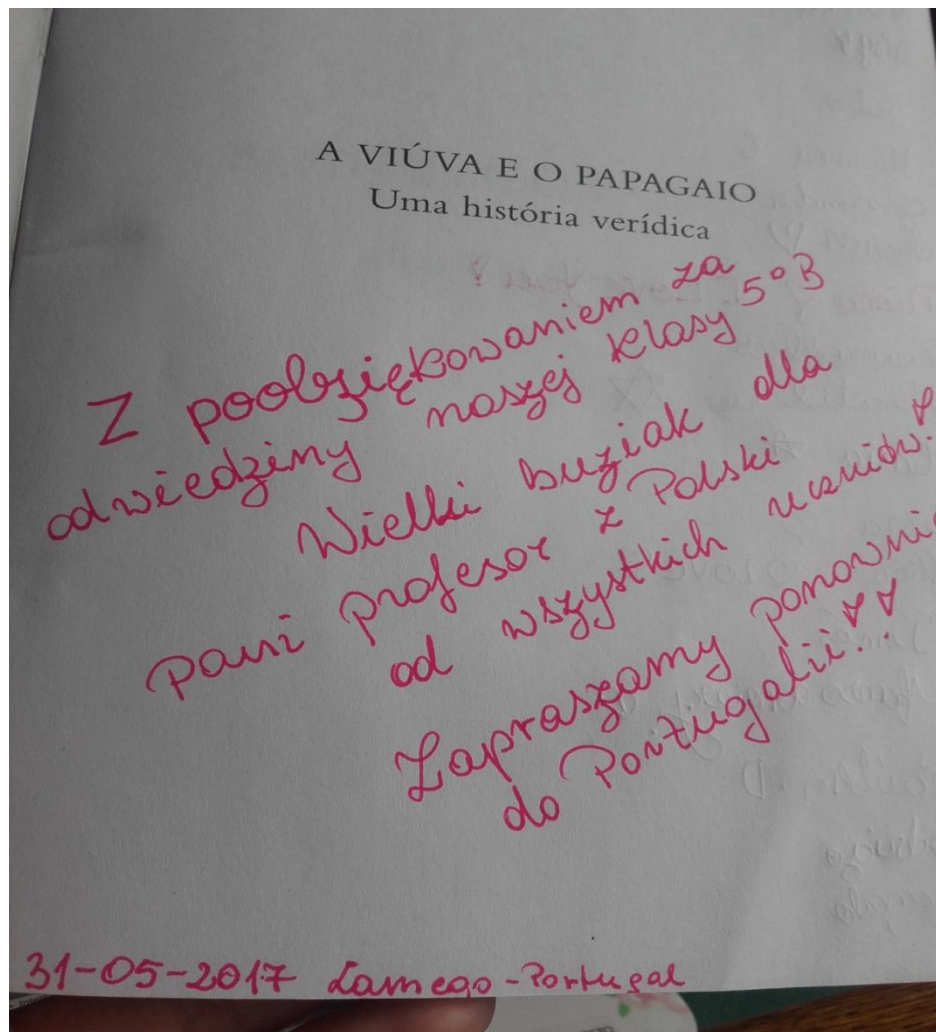 A VIÚVA E O PAPAGAIO
Uma história verídica
Z podziękowaniem za
odwiedziny naszej klasy 5º B
Wielki buziak dla
pani profesor z Polski
od wszystkich uczniów!
Zapraszamy ponownie
do Portugalii!!
31-05-2017 Lamego - Portugal